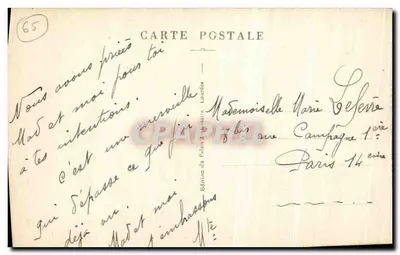 65
CARTE POSTALE
Nous avons priées
Mad et moi pour toi
à tes intentions.
c'est une merveille
qui dépasse ce que j'ai
déjà vu.
Mad et moi
t'embrassons
Mte
Edition du Palais Lourdes
Mademoiselle Marie Lefevre
bis rue Campagne 1ère
Paris 14ème
CPAPHIL